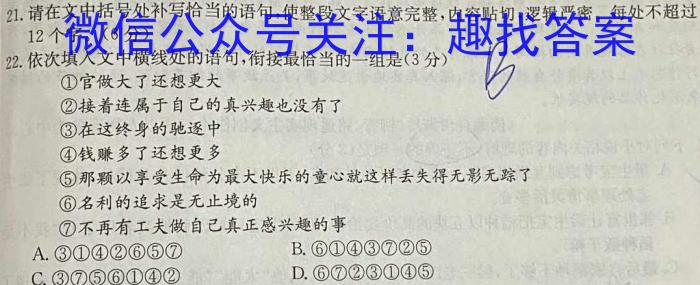 21.请在文中括号处补写恰当的语句,使整段文字语意完整,内容贴切,逻辑严密,每处不超过
12个字。(6分)
微信公众号关注：趣找答案
22.依次填入文中横线处的语句,衔接最恰当的一组是(3分)
B
①官做大了还想更大
②接着连属于自己的真兴趣也没有了
③在这终身的驰逐中
④钱赚多了还想更多
⑤那颗以享受生命为最大快乐的童心就这样丢失得无影无踪了
⑥名利的追求是无止境的
⑦不再有工夫做自己真正感兴趣的事
A.③①④②⑥⑤⑦ B.⑥①④③⑦②⑤
C.③⑦⑤⑥①④② D.⑥⑦②③①④⑤